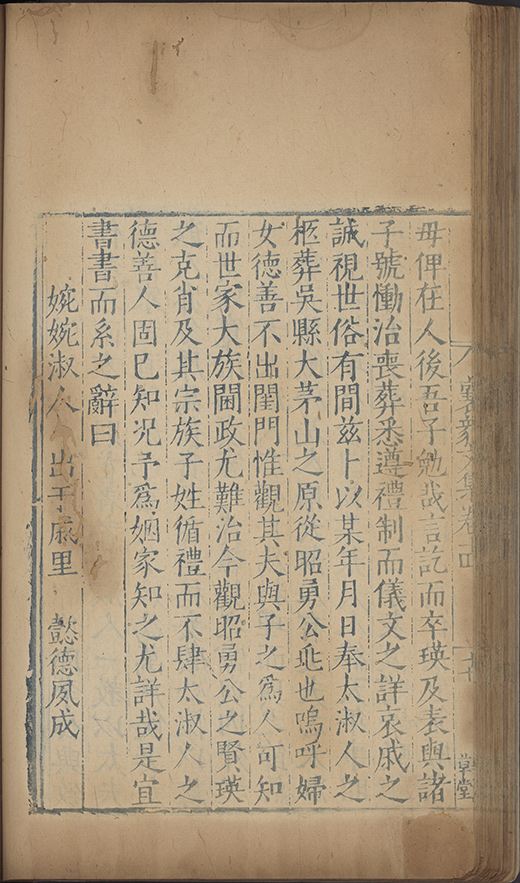 毋俾在人後吾子勉哉言訖而卒瑛及表與諸
子號慟治喪葬悉遵禮制而儀文之詳哀戚之
誠視世俗有間玆卜以某年月日奉太淑人之
柩葬吳縣大茅山之原從昭勇公兆也嗚呼婦
女德善不出閨門惟觀其夫與子之爲人可知
而世家大族閫政尤難治今觀昭勇公之賢瑛
之克肖及其宗族子姓循禮而不肆太淑人之
德善人固已知况予爲姻家知之尤詳哉是宜
書書而系之辭曰
婉婉淑人 出于戚里 懿德夙成
文集卷四
草堂